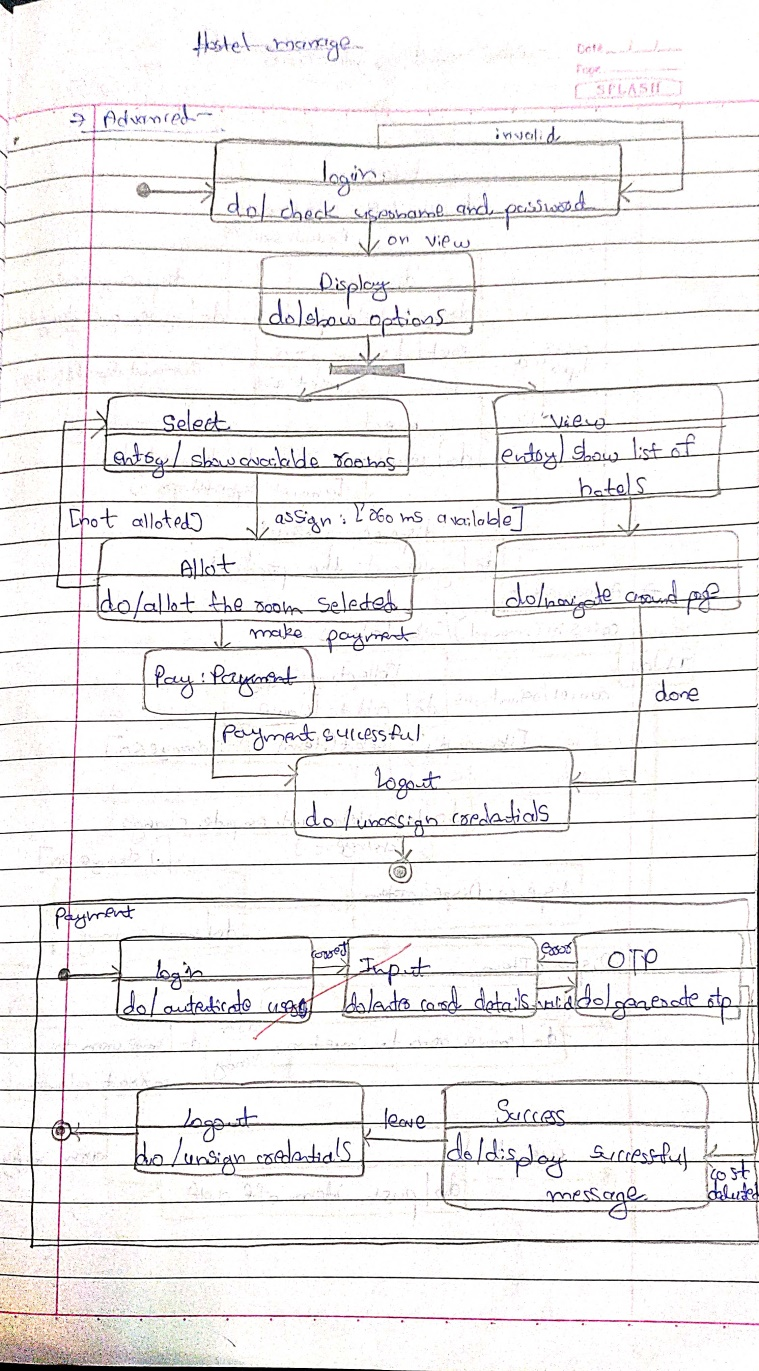 Hostel manage
Date
Page
SPLASH
→ Advanced -
invalid
login
do/ check username and password
on view
Display
do/show options
Select
entry/ show available rooms
View
entry/ show list of
hotels
[not alloted]
assign: [rooms available]
Allot
do/allot the room selected
do/navigate around pg
make payment
Pay : Payment
done
Payment successful
Logout
do /unassign credentials
Payment
login
do/ autenticate user
correct
Input
do/entr card details
Error
valid
OTP
do/generate otp
Logout
do /unsign credentials
leave
Success
do/display successful
message
cost